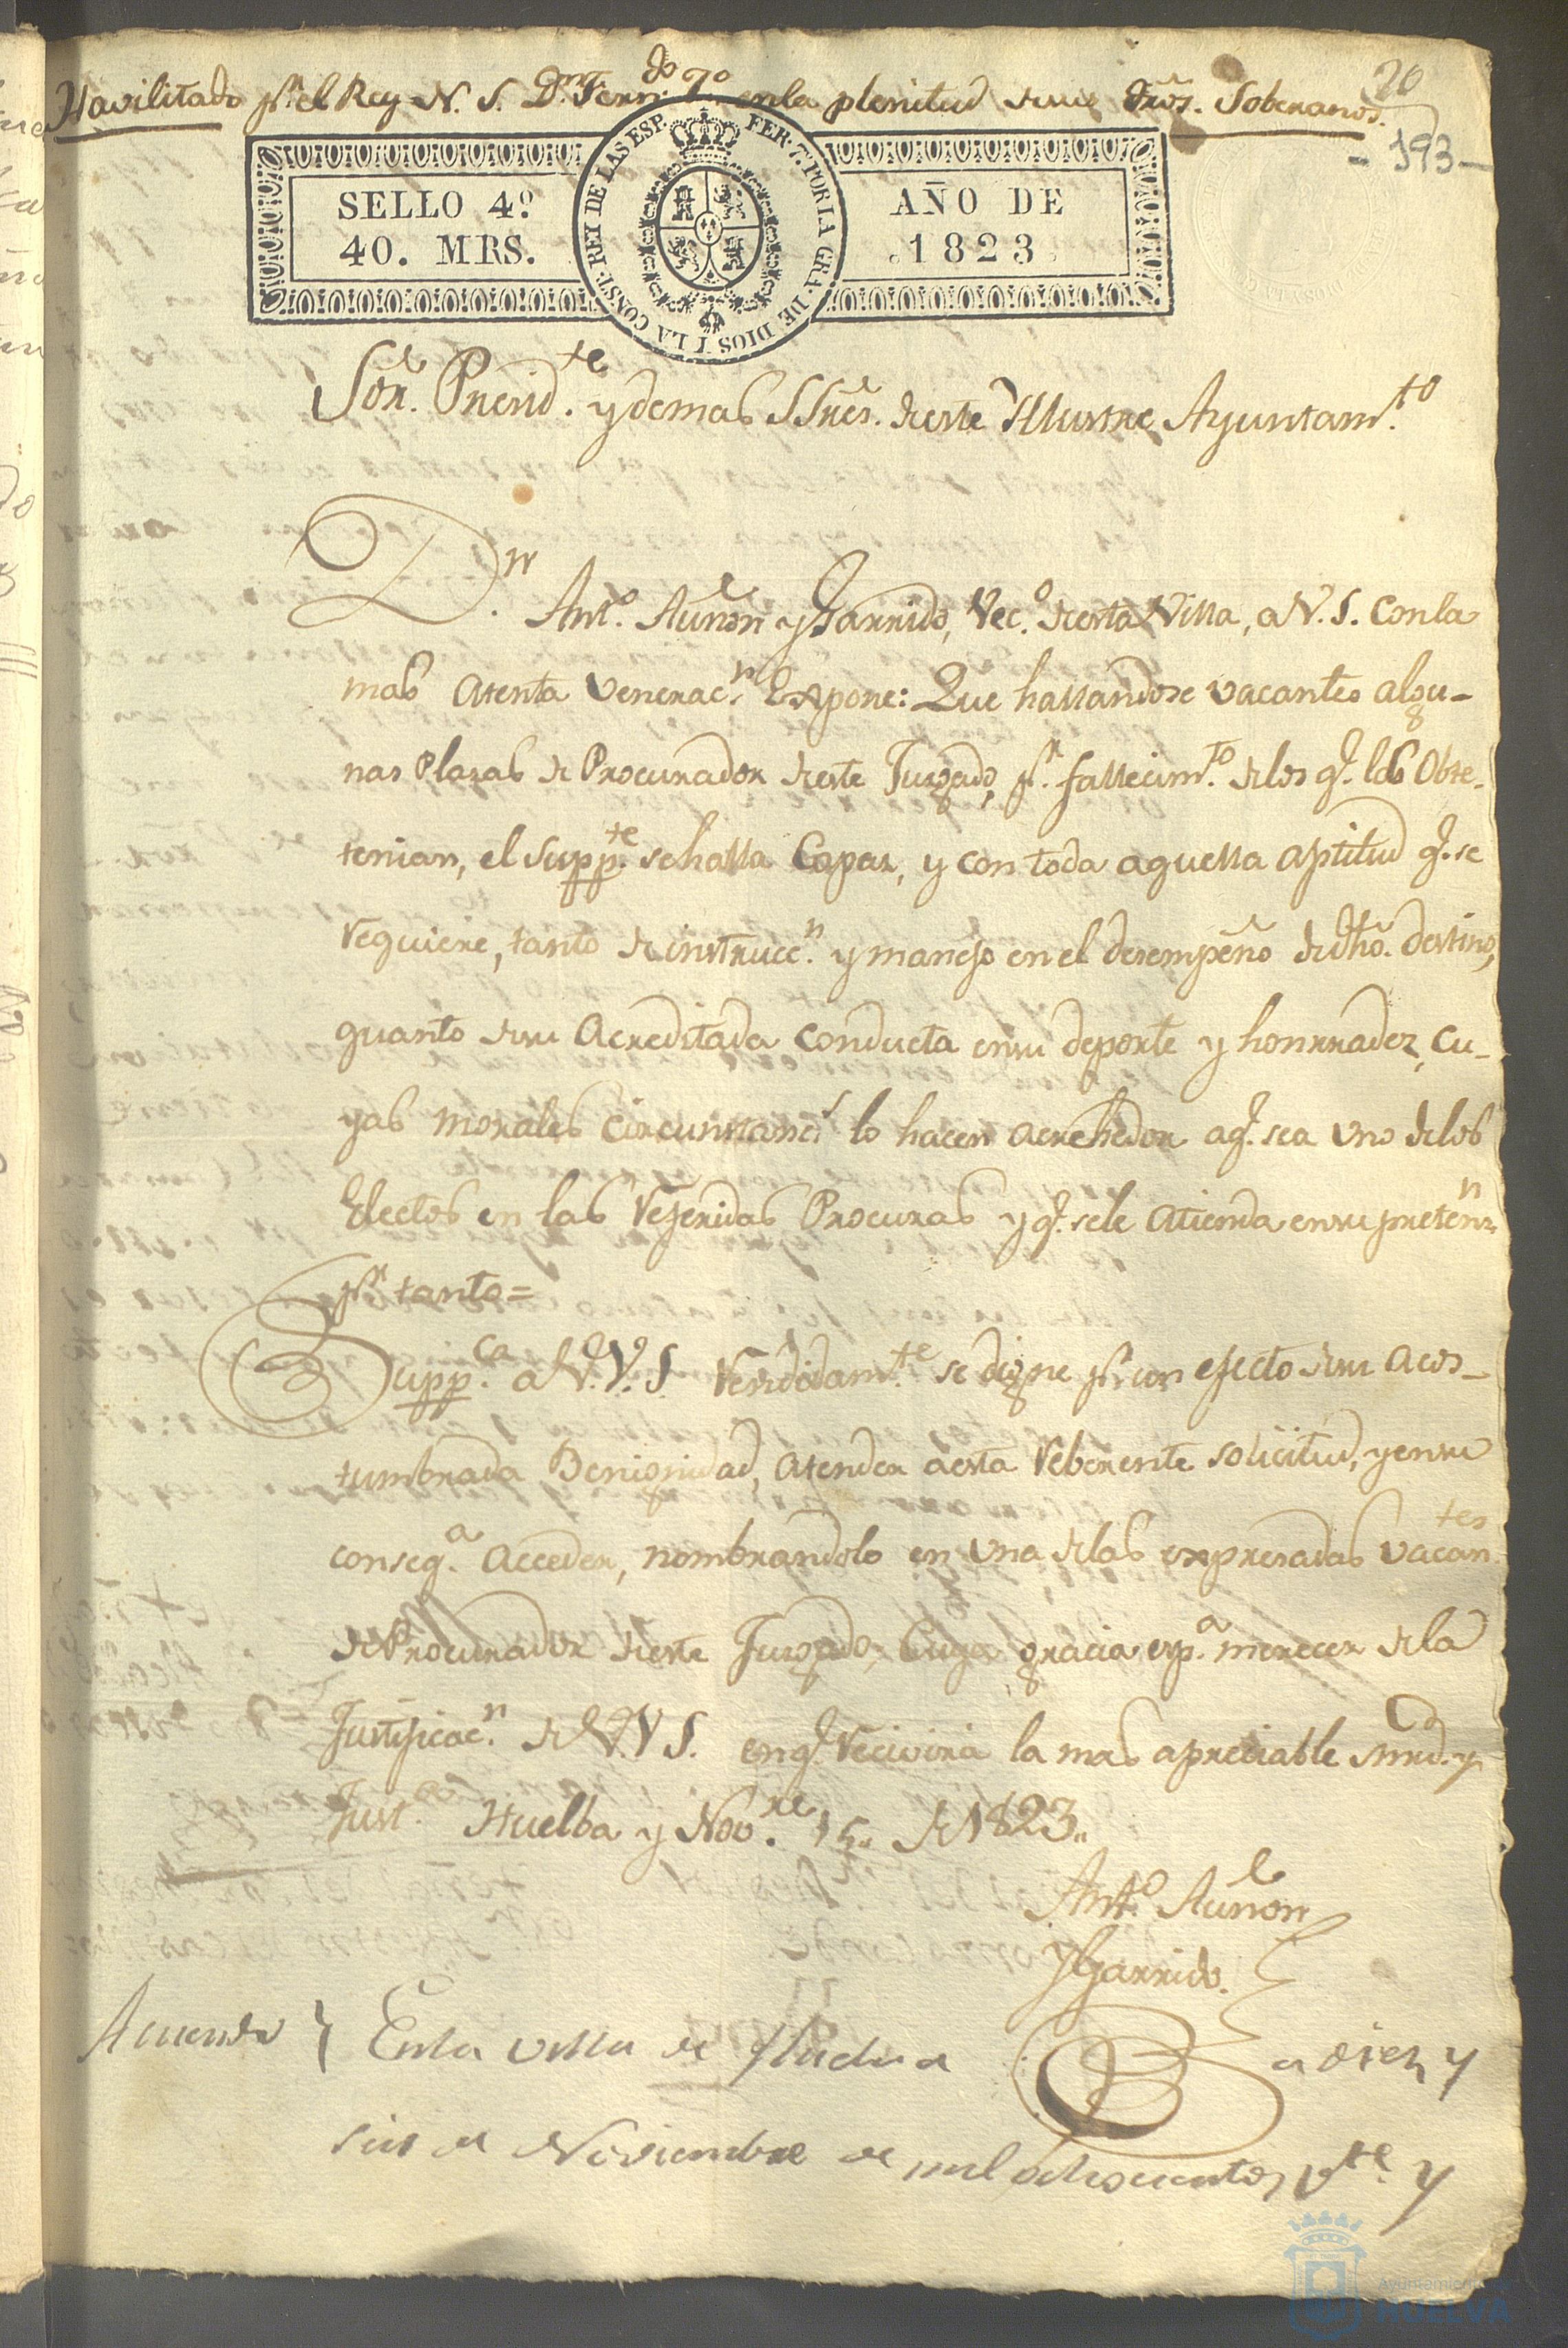 Havilitado pr. el Rey N. S. Dn. Ferndo. 7o. en la plenitud de sus dros. Soberanos.
20
- 193 -
SELLO 4º
40. MRS.
FER. 7. POR LA GRA. DE DIOS Y LA CONST. REY DE LAS ESP.
AÑO DE
1823.
Sor. Presidte. y demas SSres. de este Yllustre Ayuntamto.
Dn. Anto. Auñon y Garrido, Veco. de esta Villa, a V. S. con la
mas atenta veneracn. Expone: Que hallandose vacantes algu-
nas Plazas de Procurador de este Juzgado, pr. fallecimto. de los q. las obte-
tenian, el suppte. se halla Capaz, y con toda aquella aptitud q. se
requiere, tanto de instruccn. y manejo en el desempeño de dho. destino,
quanto de su acreditada conducta en su deporte y honrradez, cu-
yas morales circunstancs. lo hacen acrehedor a q. sea uno de los
Electos en las referidas Procuras y q. se le atienda en su pretenn.
pr. tanto =
Suppca. a V. V. S. rendidamte. se digne pr. un efecto de su acos-
tumbrada Benignidad, atender a esta reberente solicitud, y en su
conseqa. acceder, nombrandolo en una de las expresadas vacantes
de Procurador de este Juzgado; Cuya gracia espa. merecer de la
Justificacn. de V. V. S. en q. recivirá la mas apreciable mrd. y
Justa. Huelba y Novre. 15,, de 1823,,
Anto. Auñon
y Garrido.
Acuerdo } En la villa de Huelva a diez y
seis de Noviembre de mil ochocientos vte. y
Ayuntamiento de
HUELVA